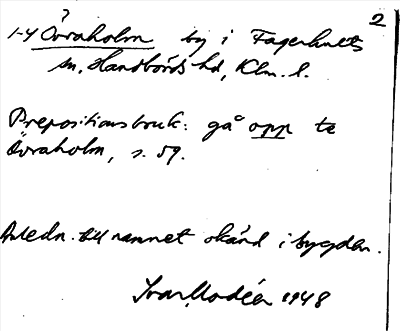 2
1-4 Övraholm by i Fagerhults
sn, Handbörds hd, Klm. l.
Prepositionsbruk: gå opp te
Övraholm, s. 59.
Anledn. till namnet okänd i bygden.
Ivar Modéer 1948